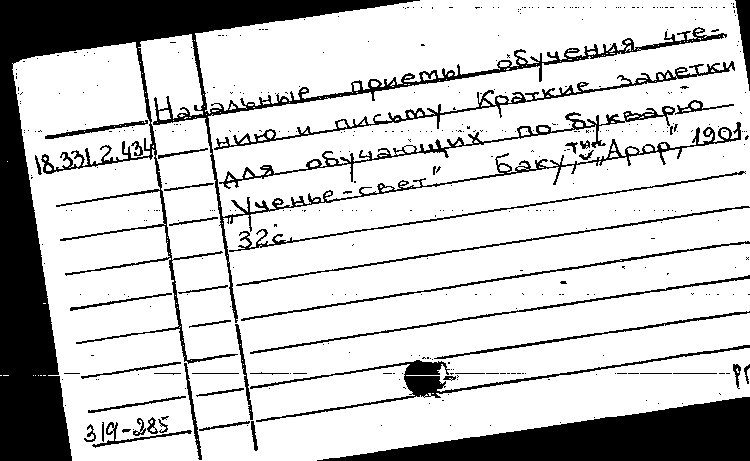 Начальные приемы обучения чте-
нию и письму. Краткие заметки
18.331.2.434
для обучающих по букварю
„Ученье-свет". Баку, тип. „Арор", 1901.
32 с.
319-285